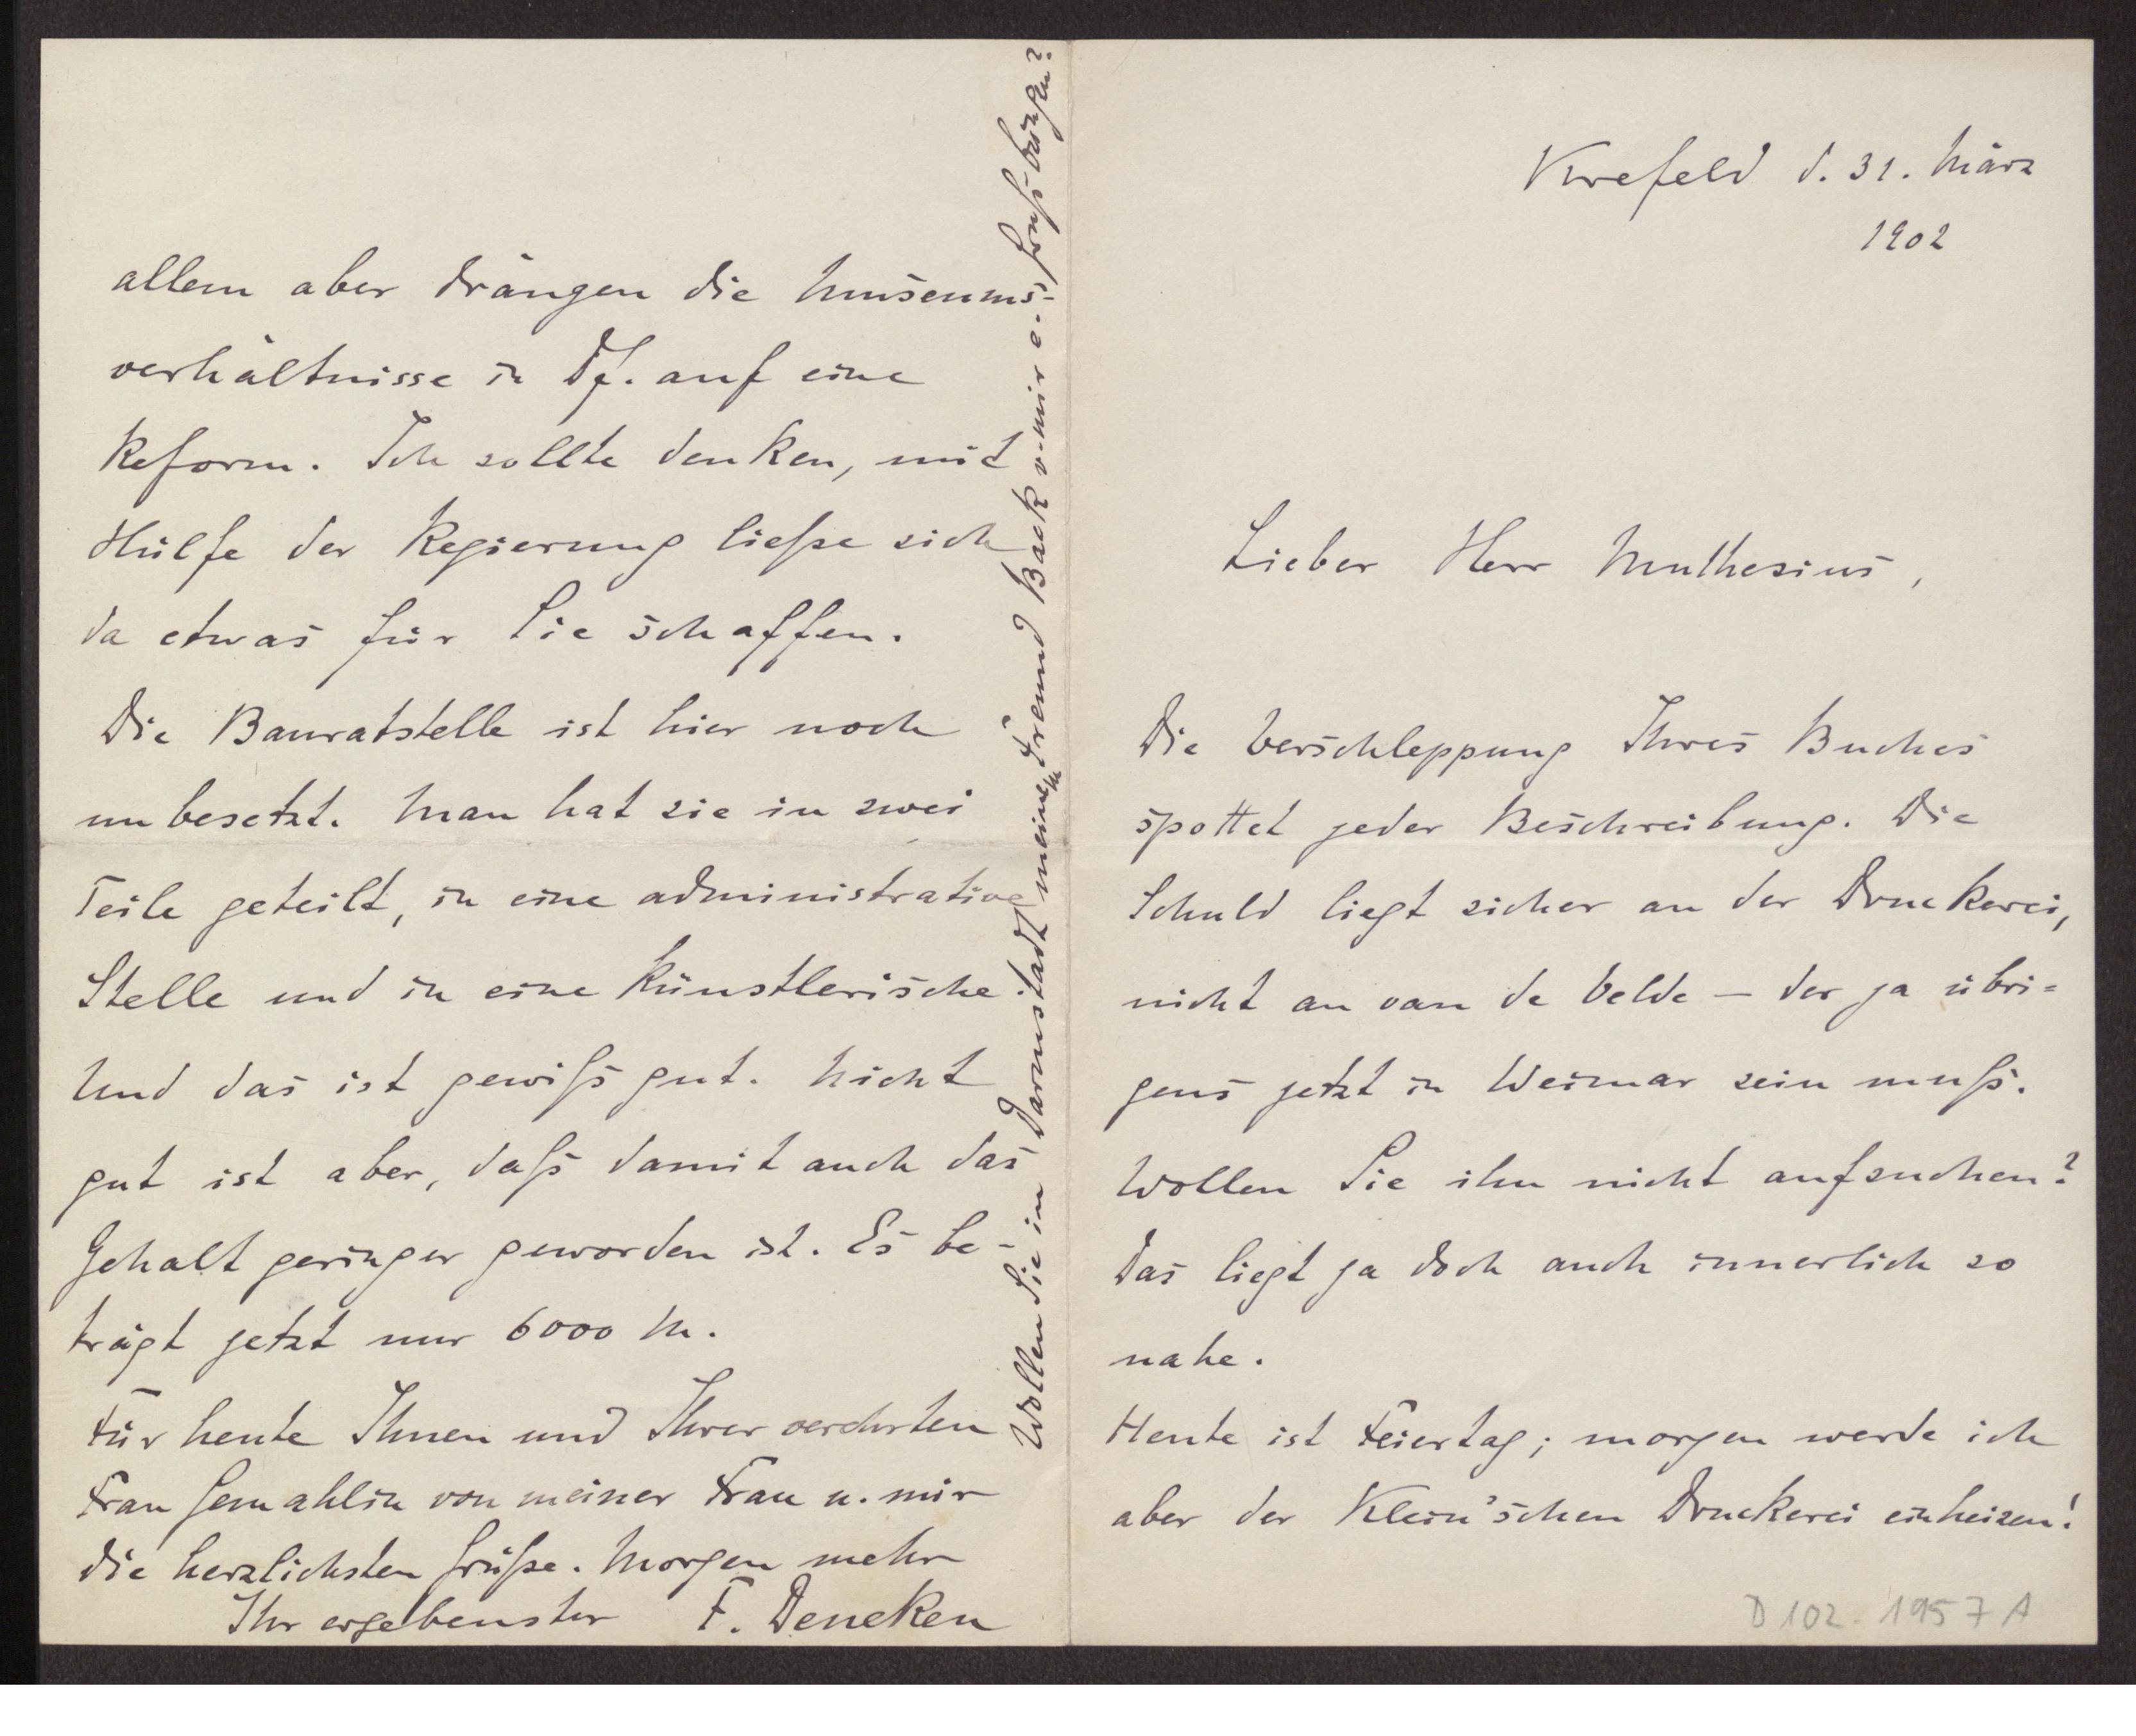 Krefeld d. 31. März
1902
Lieber Herr Muthesius,
Die Verschleppung Ihres Buches
spottet jeder Beschreibung. Die
Schuld liegt sicher an der Druckerei,
nicht an van de Velde – der ja übri=
gens jetzt in Weimar sein muſs.
Wollen Sie ihn nicht aufsuchen?
Das liegt ja doch auch innerlich so
nahe.
Heute ist Feiertag; morgen werde ich
aber der Klein'schen Druckerei einheizen!
D 102-1957 A
allem aber drängen die Museums-
verhältnisse in Df. auf eine
Reform. Ich sollte denken, mit
Hülfe der Regierung lieſse sich
da etwas für Sie schaffen.
Die Bauratstelle ist hier noch
unbesetzt. Man hat sie in zwei
Teile geteilt, in eine administrative
Stelle und in eine künstlerische.
Und das ist gewiſs gut. Nicht
gut ist aber, daſs damit auch das
Gehalt geringer geworden ist. Es be-
trägt jetzt nur 6000 M.
Für heute Ihnen und Ihrer verehrten
Frau Gemahlin von meiner Frau u. mir
die herzlichsten Grüſse. Morgen mehr
Ihr ergebenster F. Deneken
Wollen Sie in Darmstadt meinem Freund Back v. mir e. Gruſs bringen?